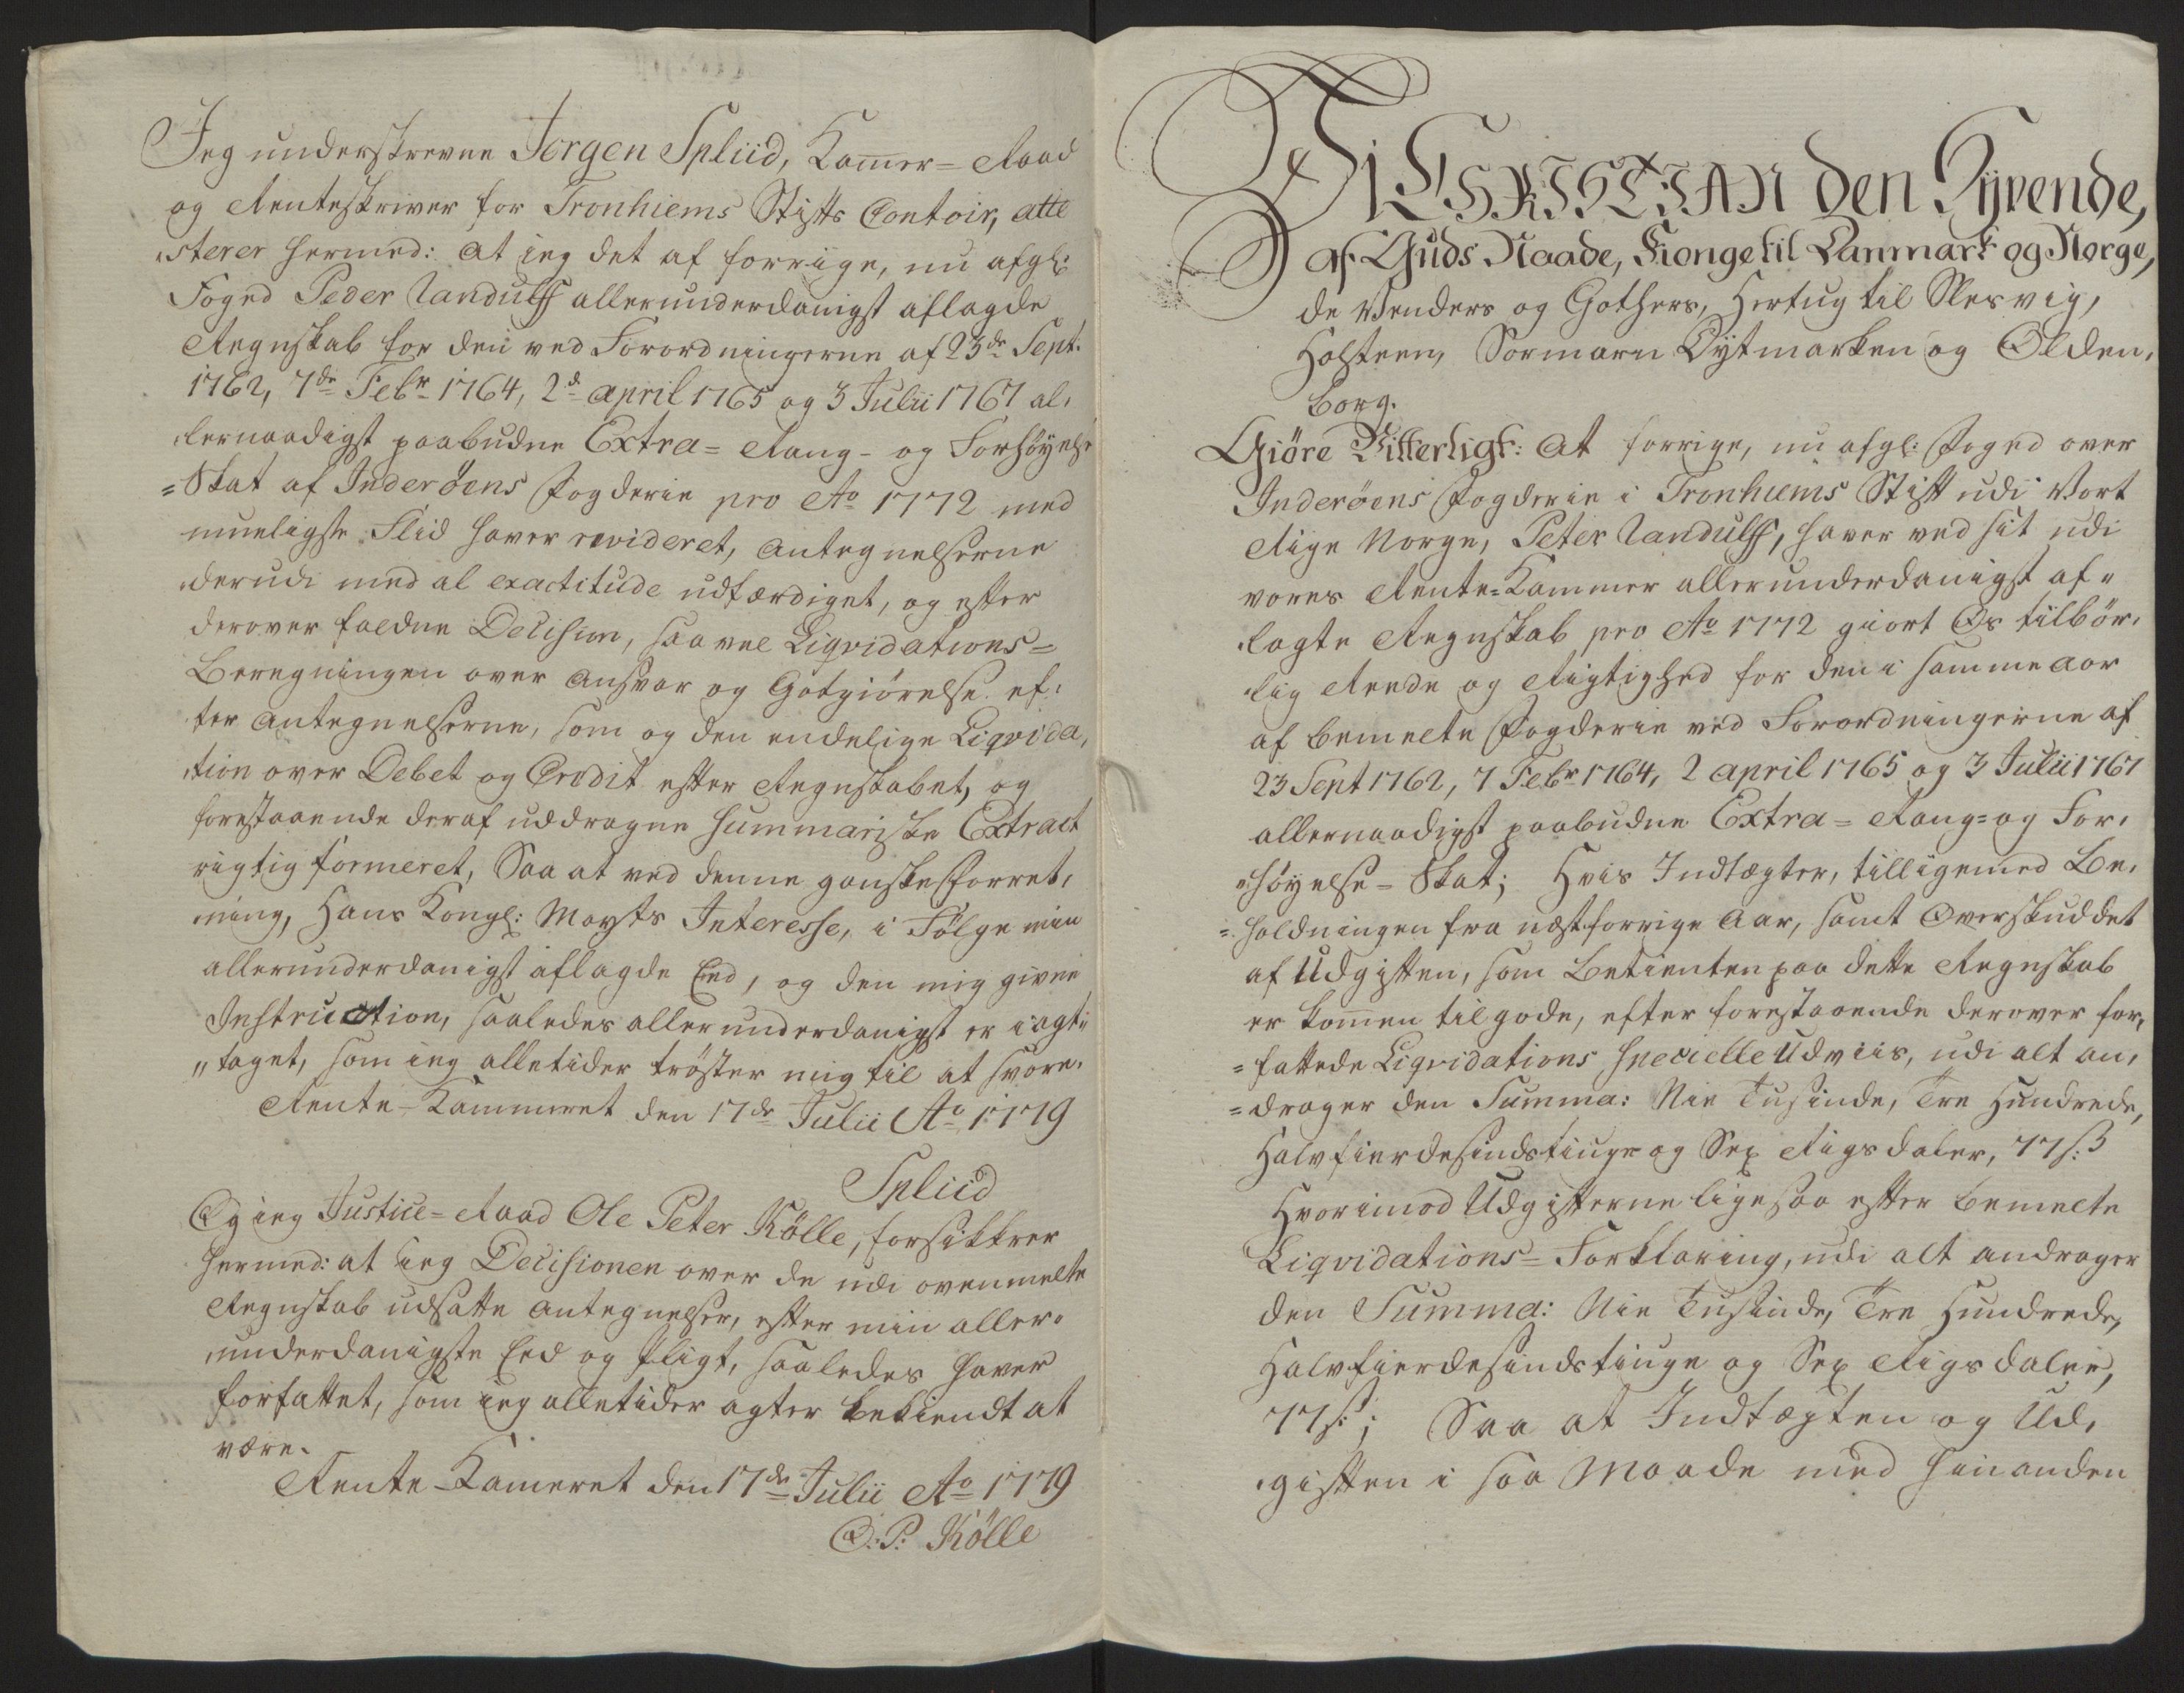 Jeg underskrevne Jörgen Spliid, Kammer-Raad
og Renteskriver for Tronhiems Stifts Contoir, atte
sterer hermed: at ieg det af forrige, nu afgl:
Foged Peder Vandulff allerunderdanigst aflagde
Regnskab for den ved Forordningerne af 23de Sept.
1762, 7de Febr 1764, 2d april 1765 og 3 Julii 1767 al,
lernaadigst paabudne Extra- Rang- og Forhöyels
=Skat af Inderöens Fogderie pro Ao 1772 med
mueligste Flid haver revideret, Antegnelserne
derudi med al exactitude udfærdiget, og efter
derover faldne Decision, saavel Liqvidations-
Beregningen over Ansvar og Godtgiörelse ef,
ter Antegnelserne, som og den endelige Liqvida,
tion over Debet og Credit efter Regnskabet, og
forestaaende deraf uddragne Summariske Extract
rigtig formeret, Saa at ved denne ganske Forret,
ning, Hans Kongl: Mayts Interesse, i Fölge min
allerunderdanigst aflagde Eed, og den mig givne
Instruction, saaledes allerunderdanigst er iagt„
„taget, som ieg alletider tröster mig til at svare.
Rente-Kammeret den 17de Julii Ao 1779
Spliid
Og ieg Justice-Raad Ole Peter Kölle, forsikkrer
hermed: at ieg Decisionen over de udi ovenmelte
Regnskab udsatte Antegnelser, efter min aller„
underdanigste Eed og Pligt, saaledes haver
forfattet, som ieg alletider agter bekiendt at
være.
Rente-Kameret den 17de Julii Ao 1779
O. P. Kölle
Vi CHRISTIAN den Syvende,
af Guds Naade, Konge til Danmark og Norge,
de Venders og Gothers, Hertug til Slesvig,
Holsteen, Stormarn Dytmarken og Olden,
borg.
Giöre Vitterligt: At forrige, nu afgl: Foged over
Inderöens Fogderie i Tronhiems Stift udi Vort
Rige Norge, Peter Vandulff, haver ved sit udi
vores Rente-Kammer allerunderdanigst af„
lagte Regnskab pro Ao 1772 giort Os tilbör,
lig Reede og Rigtighed for den i samme Aar
af bemelte Fogderie ved Forordningerne af
23 Sept 1762, 7 Febr 1764, 2 april 1765 og 3 Julii 1767
allernaadigst paabudne Extra- Rang- og For,
„höyelse- Skat; Hvis Indtægter, tilligemed Be,
=holdningen fra nestforrige Aar, samt Overskuddet
af Udgiften, som Betienten paa dette Regnskab
er kommen tilgode, efter forestaaende derover for,
=fattede Liqvidations Specielle Udviis, udi alt an,
=drager den Summa: Nie Tusinde, Tre Hundrede,
Halvfierdesindstiuge og Sex Rigsdaler, 77 s:
Hvorimod Udgifterne ligesaa efter bemelte
Liqvidations- Forklaring, udi alt andrager
den Summa: Nie Tusinde, Tre Hundrede,
Halvfierdesindstiuge og Sex Rigsdaler,
77 s:; Saa at Indtægten og Ud,
giften i saa Maade med hinanden